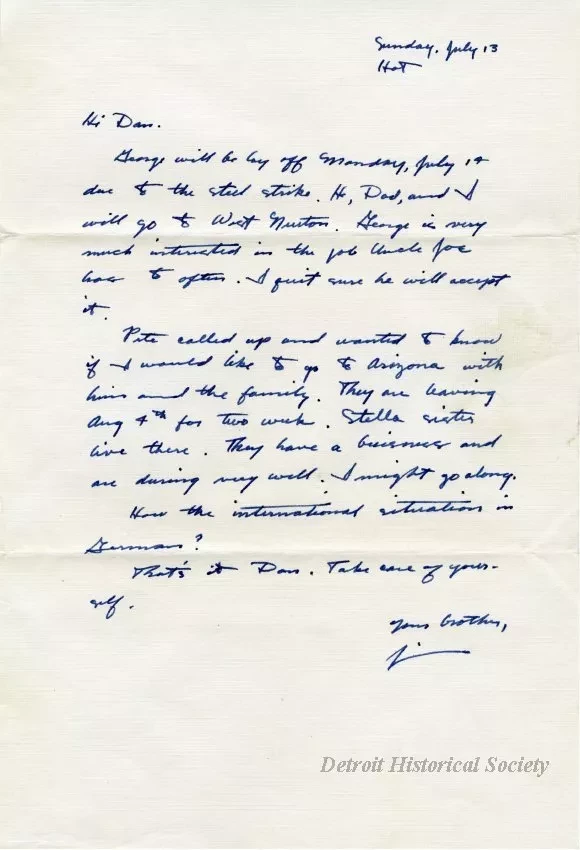 Sunday, July 13
Hot
Hi Dan.
George will be lay off Monday, July 14
due to the steel strike. He, Dad, and I
will go to West Newton. George is very
much interested in the job Uncle Joe
has to offer. I quit sure he will accept
it.
Pete called up and wanted to know
if I would like to go to Arizona with
him and the family. They are leaving
Aug 4th for two week. Stella sister
live there. They have a business and
are during very well. I might go along.
How the international situation in
German?
That's it Dan. Take care of your-
self.
Your brother,
Jim
Detroit Historical Society